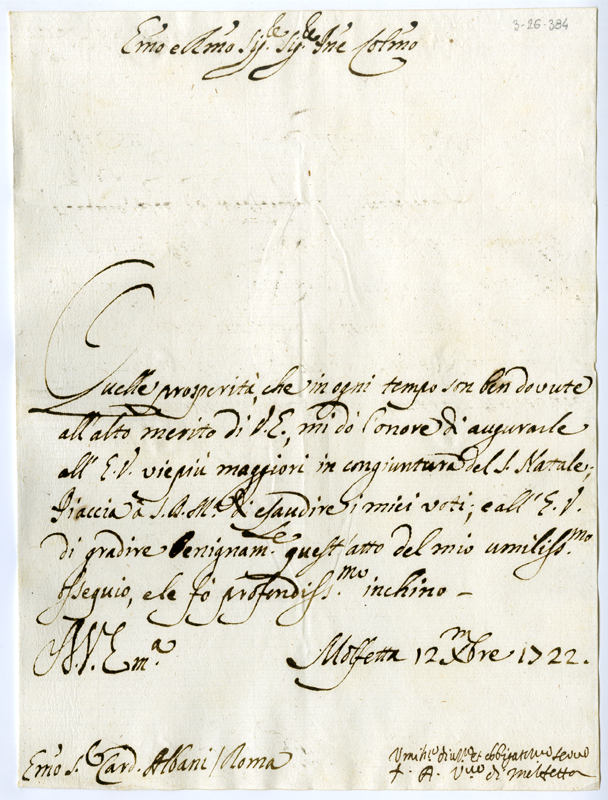 3-26-384
Emo e Rmo Sig.re Sig.re Pne Colmo
Quelle prosperità, che in ogni tempo son ben dovute
all'alto merito di V.E., mi dò l'onore di augurarle
all'E.V. vie più maggiori in congiuntura del S. Natale;
Piaccia à S.D.M.tà di esaudire i miei voti; e all'E.V.
di gradire benignam.te quest'atto del mio umiliss.mo
osseguio, e le fò profondiss.mo inchino –
Di V. Em.a
Molfetta 12 Xmbre 1722.
Umil.o div.mo et obligatimo servo
Emo S.r Card. Albani / Roma
+ A. V.vo di Molfetta